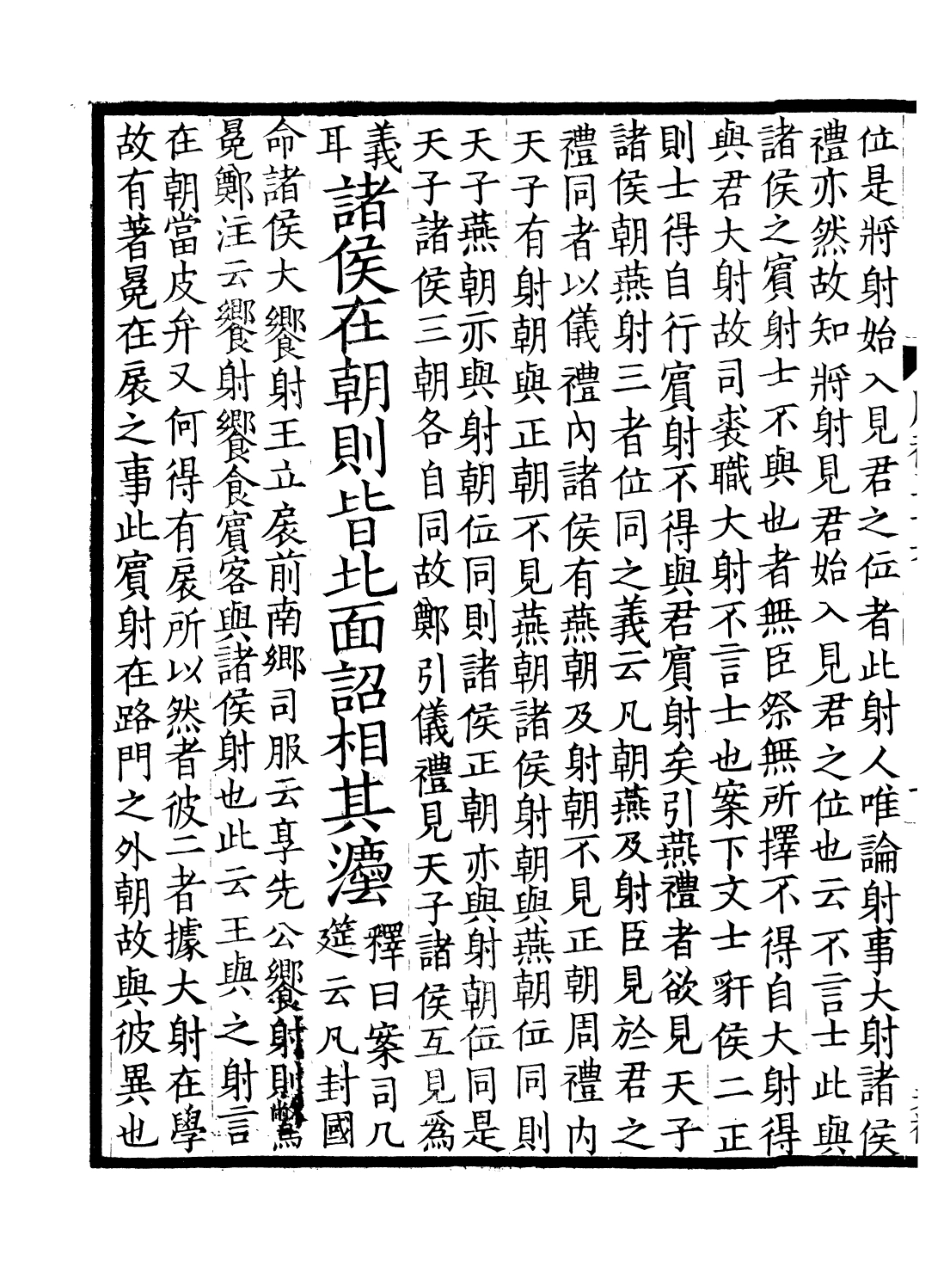 位是將射始入見君之位者此射人唯論射事大射諸侯
禮亦然故知將射見君始入見君之位也云不言士此與
諸侯之賓射士不與也者無臣祭無所擇不得自大射得
與君大射故司裘職大射不言士也案下文士豻侯二正
則士得自行賓射不得與君賓射矣引燕禮者欲見天子
諸侯朝燕射三者位同之義云凡朝燕及射臣見於君之
禮同者以儀禮內諸侯有燕朝及射朝不見正朝周禮內
天子有射朝與正朝不見燕朝諸侯射朝與燕朝位同則
天子燕朝亦與射朝位同則諸侯正朝亦與射朝位同是
天子諸侯三朝各自同故鄭引儀禮見天子諸侯互見為
義
耳
諸侯在朝則皆北面詔相其灋
釋曰案司几
筵云凡封國
命諸侯大饗射王立扆前南鄉司服云享先公饗射則鷩
冕鄭注云饗射饗食賓客與諸侯射也此云王與之射言
在朝當皮弁又何得有扆所以然者彼二者據大射在學
故有著冕在扆之事此賓射在路門之外朝故與彼異也